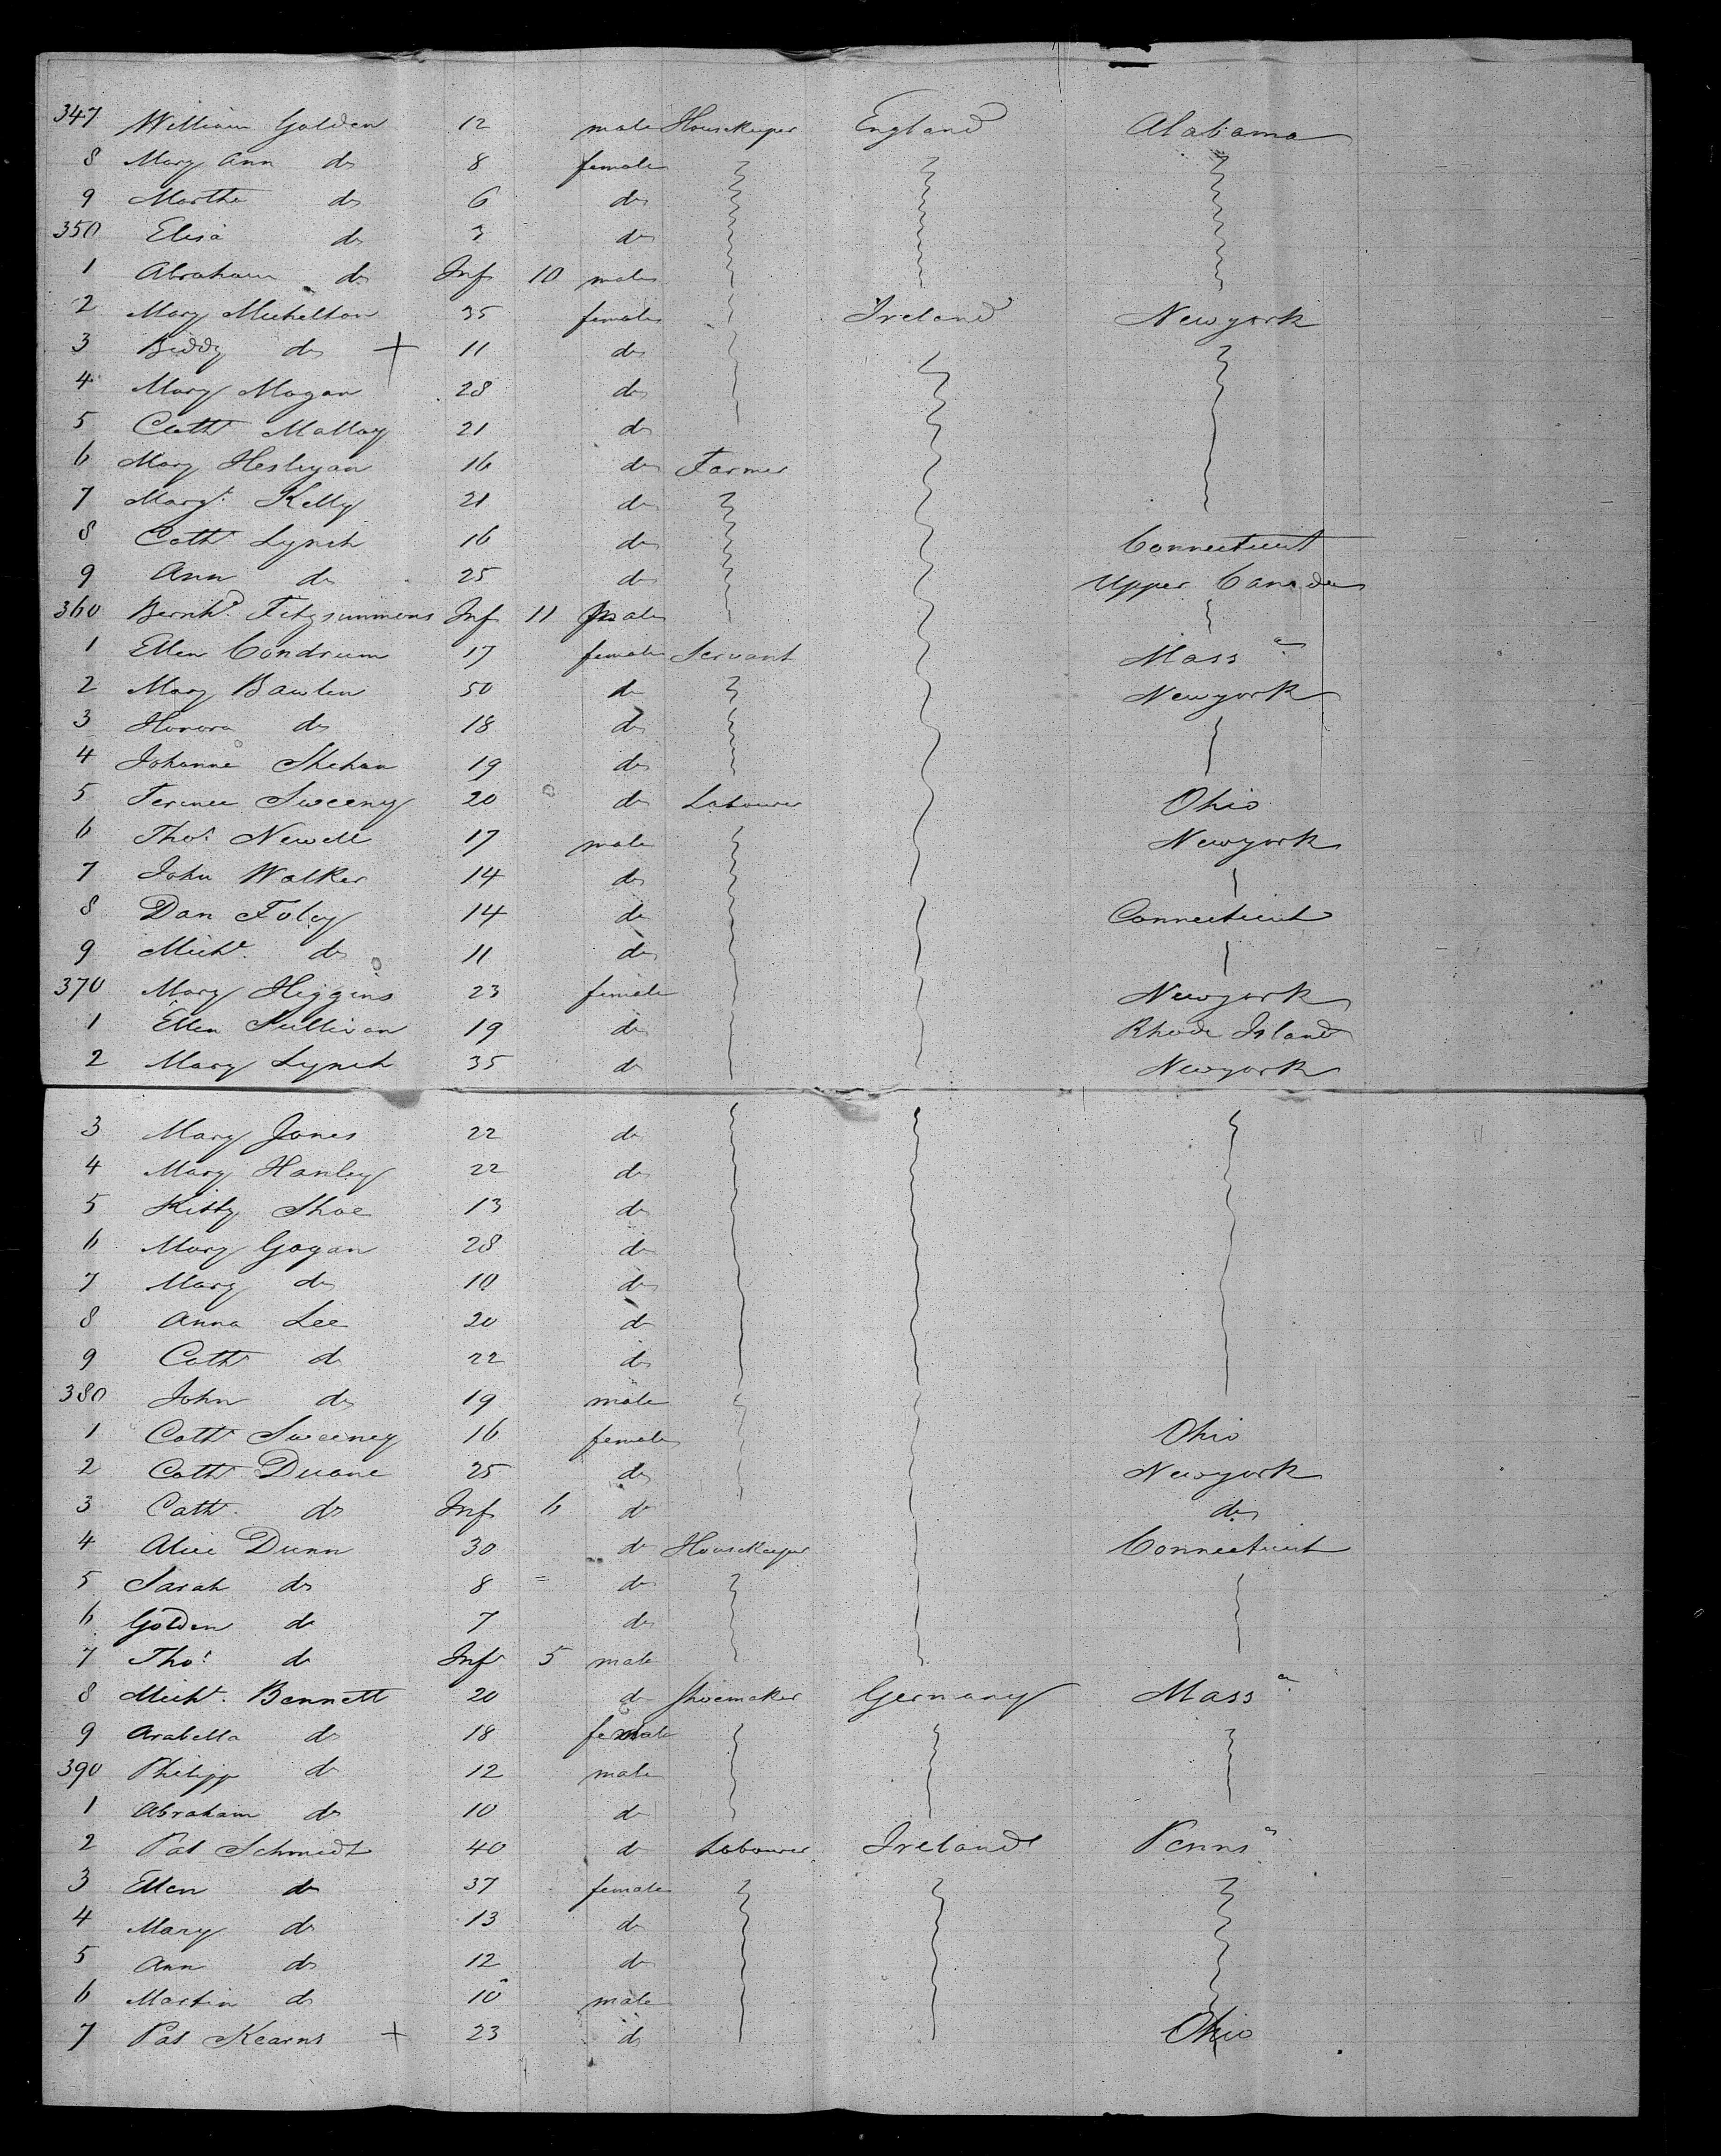 347 William Golden 12 male Housekeeper England Alabama
8 Mary Ann do 8 female
9 Martha do 6 do
350 Elisa do 3 do
1 Abraham do Inf 10 male
2 Mary Michelton 35 female Ireland Newyork
3 Biddy do + 11 do
4 Mary Magan 28 do
5 Cath Malloy 21 do
6 Mary Hesligan 16 do Farmer
7 Margt. Kelly 21 do
8 Cath Lynch 16 do Connecticut
9 Ann do 25 do Upper Canada
360 Bernhd. Fitzsimmons Inf 11 male
1 Ellen Condrum 17 female Servant Mass a
2 Mary Bawlen 50 do Newyork
3 Honora do 18 do
4 Johanna Shehan 19 do
5 Terence Sweeny 20 do Labourer Ohio
6 Thos Newell 17 male Newyork
7 John Walker 14 do
8 Dan Foley 14 do Connecticut
9 Michl. do 11 do
370 Mary Higgins 23 female Newyork
1 Ellen Sullivan 19 do Rhode Island
2 Mary Lynch 35 do Newyork
3 Mary Jones 22 do
4 Mary Hanley 22 do
5 Kitty Shoe 13 do
6 Mary Gogan 28 do
7 Mary do 10 do
8 Anna Lee 20 do
9 Cath do 22 do
380 John do 19 male
1 Cath Sweeney 16 female Ohio
2 Cath Duane 25 do Newyork
3 Cath. do Inf 6 do do
4 Alice Dunn 30 do Housekeeper Connecticut
5 Sarah do 8 = do
6 Golden do 7 do
7 Thos. do Inf 5 male
8 Michl. Bennett 20 do Shoemaker Germany Mass a
9 Arabella do 18 female
390 Philipp do 12 male
1 Abraham do 10 do
2 Pat Schmidt 40 do Labourer Ireland Penns a
3 Ellen do 37 female
4 Mary do 13 do
5 Ann do 12 do
6 Martin do 10 male
7 Pat Kearns + 23 do Ohio